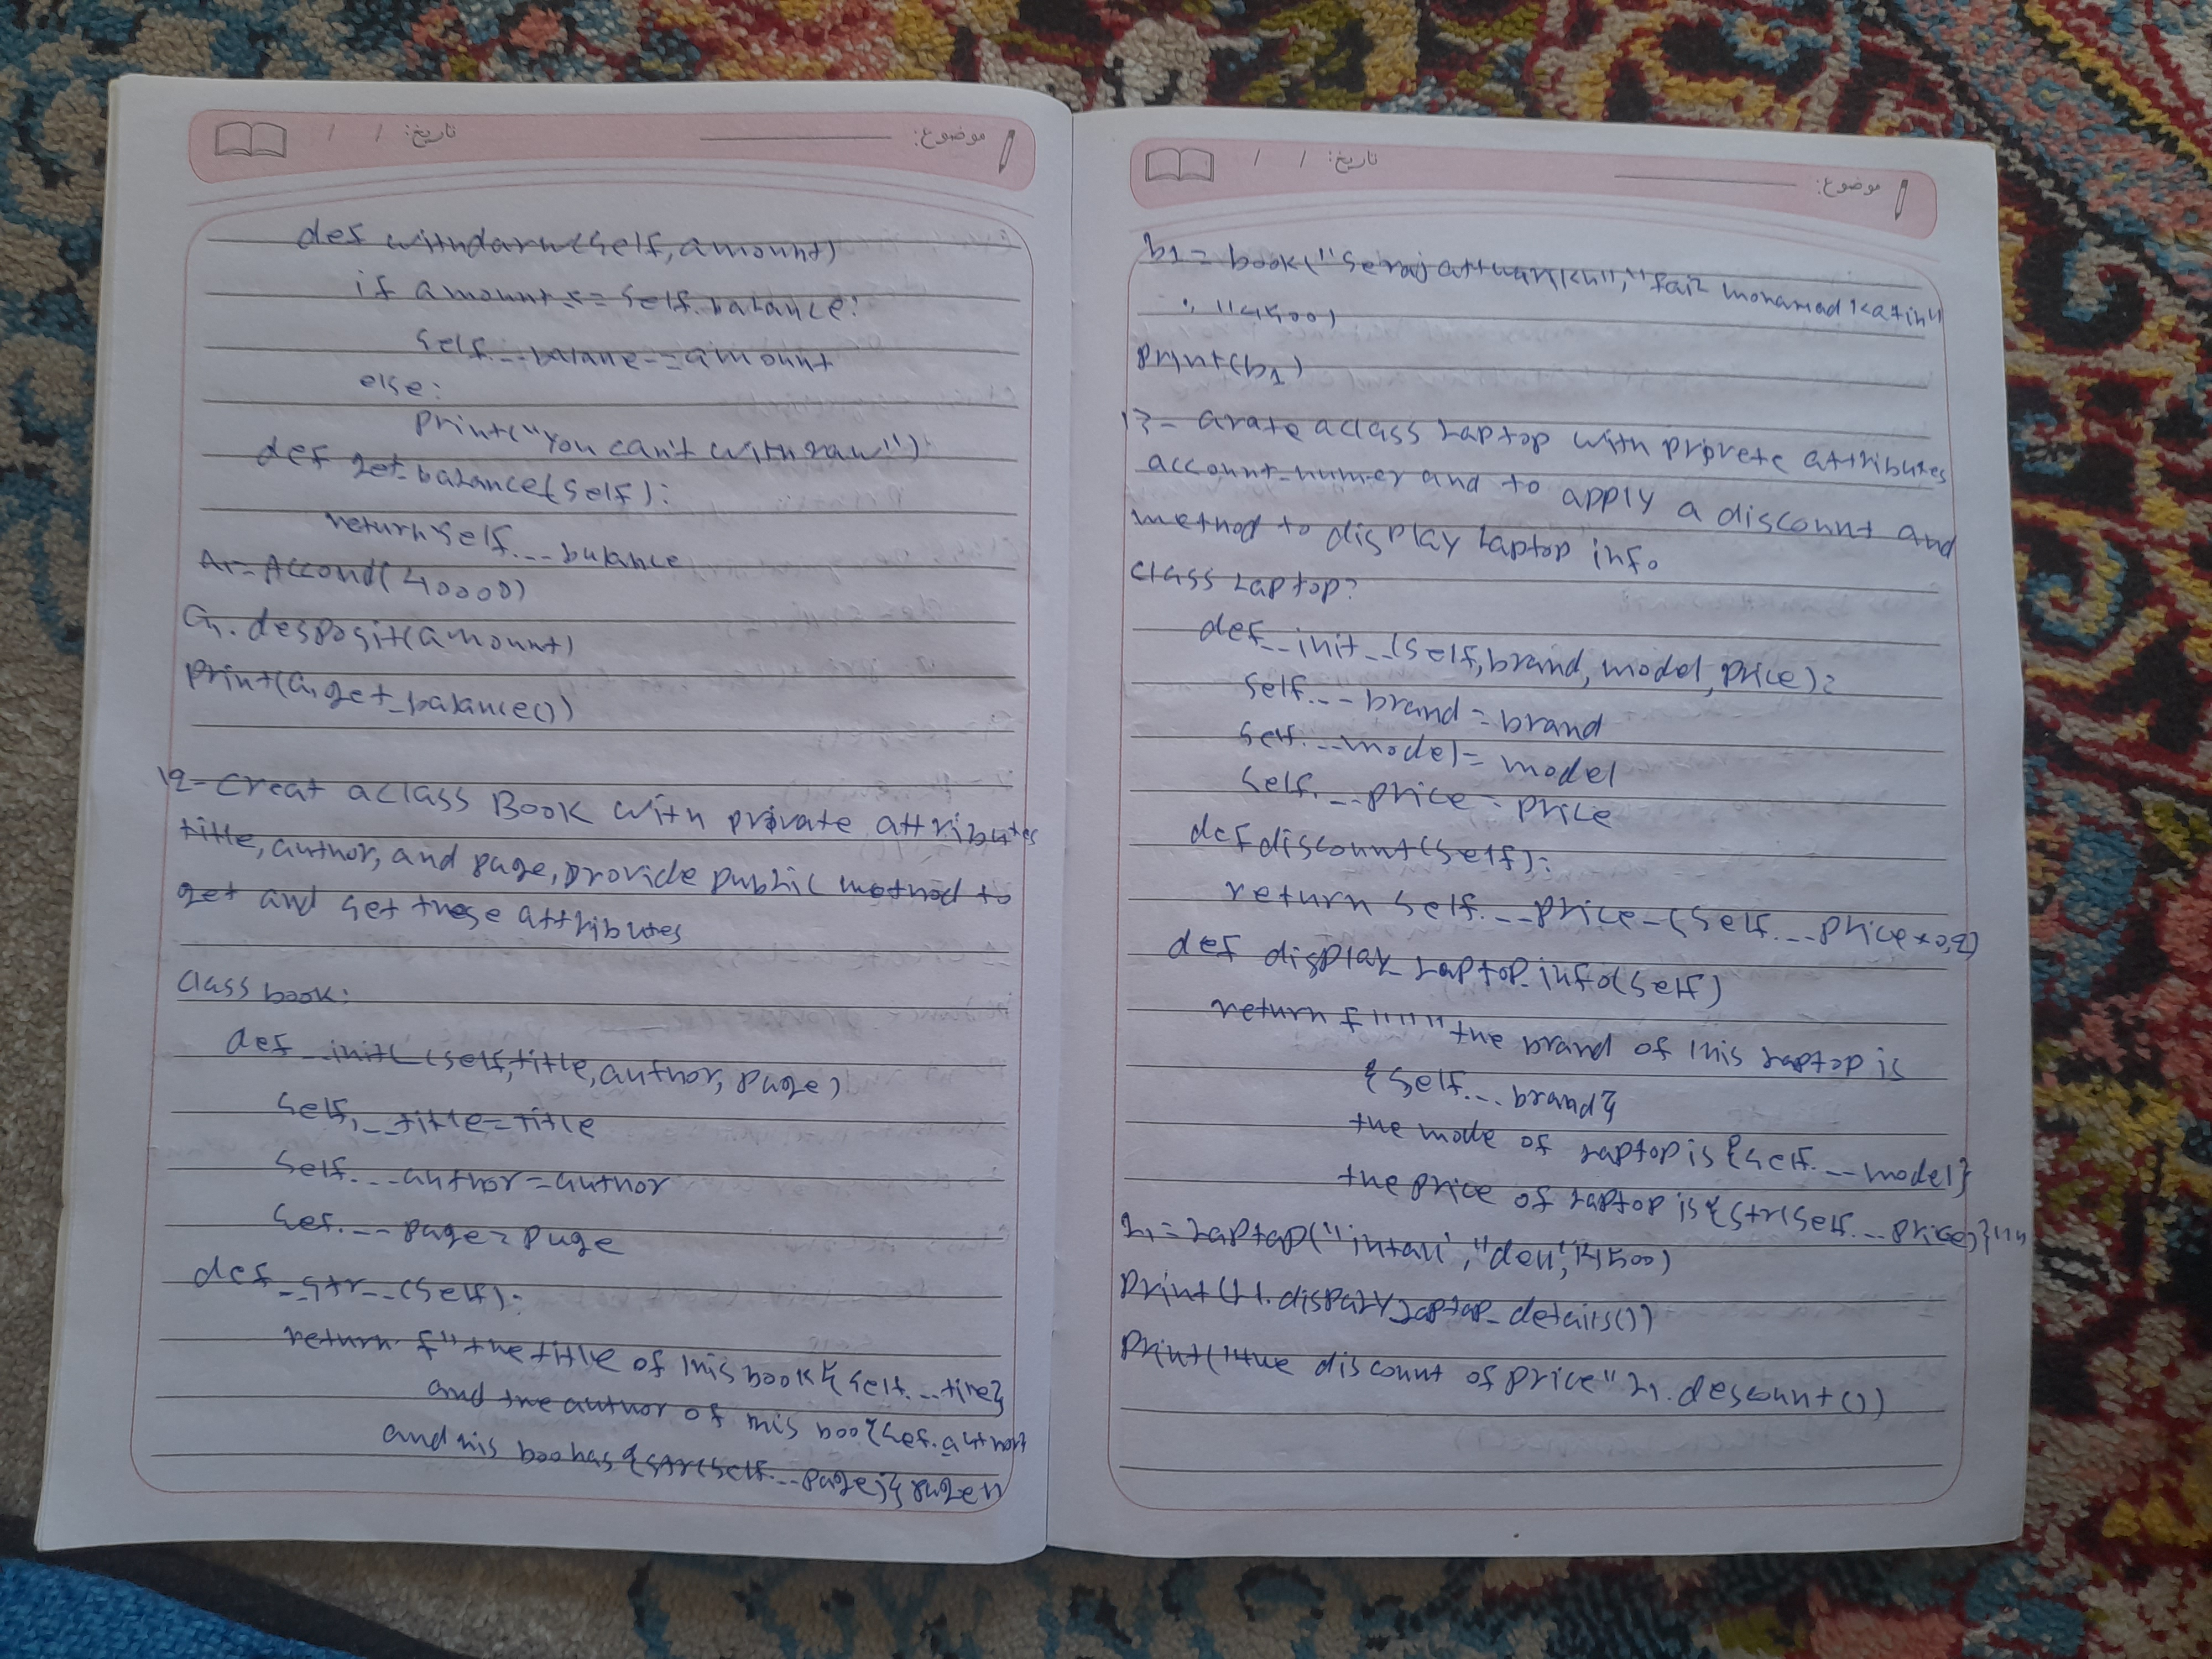 تاریخ: / / موضوع:
def withdarw(self, amount)
if amount <= self.balance:
self.__balance -= aimount
else:
print("you can't withdraw")
def get_balance(self):
return self.__balance
A1 = Accond(40000)
a1.desposit(amount)
print(a1.get_balance())
12- Creat a class Book with private attributes
title, author, and page, provide public method to
get and set these attributes
class book:
def __init__(self, title, author, page)
self.__title = title
self.__author = author
self.__page = page
def __str__(self):
return f"the title of this book {self.__title}
and the author of this boo{self.author}
and this book has {str(self.__page)} pages
تاریخ: / / موضوع:
b1 = book(" "," mohamad kazim
", 500)
print(b1)
13- create a class laptop with private attributes
account_number and to apply a discount and
method to display laptop info
class laptop:
def __init__(self, brand, model, price):
self.__brand = brand
self.__model = model
self.__price = price
def discount(self):
return self.__price - (self.__price * 0,2)
def display_laptop_info(self)
return f""" the brand of this laptop is
{self.__brand}
the mode of laptop is {self.__model}
the price of laptop is {str(self.__price)}
l1 = laptop("intail", "dell", 1500)
print(l1.display_laptop_details())
print("the discount of price" l1.descount())